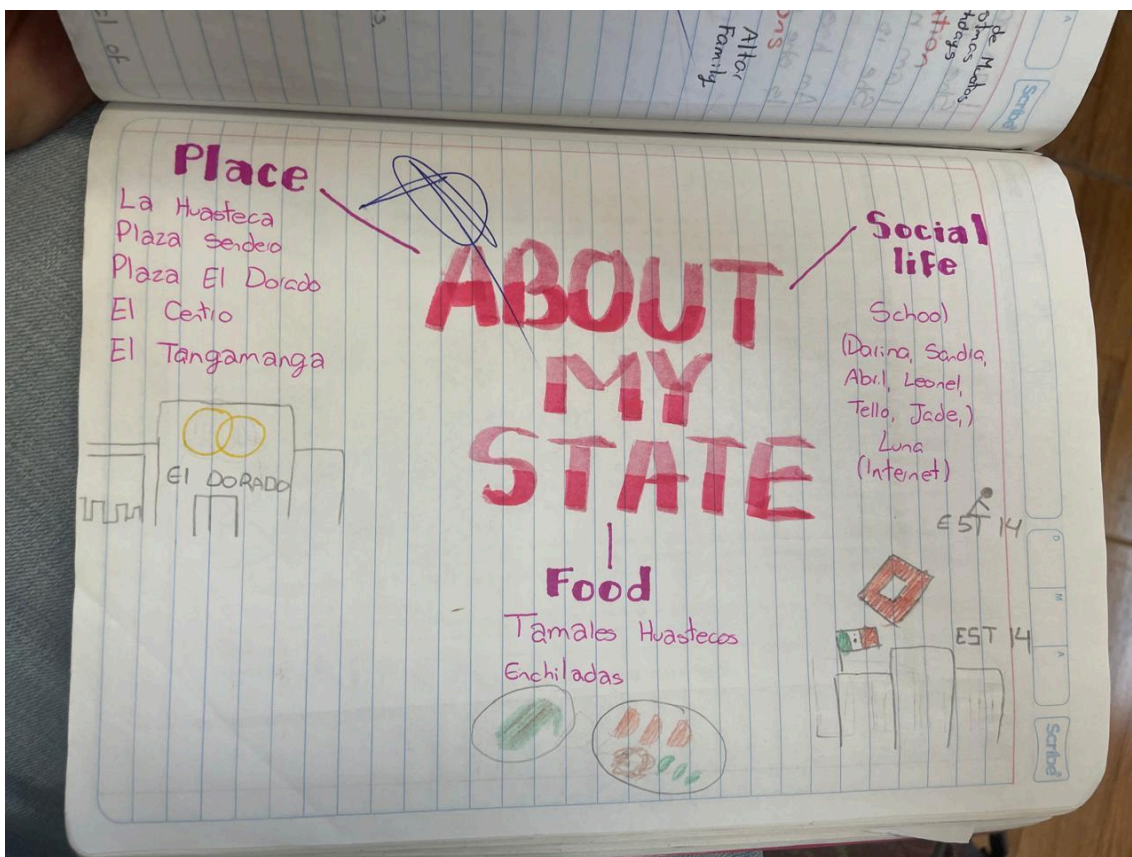 de Muertos
Altar
Family
Scribe
Place
La Huasteca
Plaza Sendero
Plaza El Dorado
El Centro
El Tangamanga
El DORADO
ABOUT
MY
STATE
Social
life
School
(Darina, Sandra,
Abril, Leonel,
Tello, Jade,)
Luna
(Internet)
EST 14
EST 14
Food
Tamales Huastecos
Enchiladas
D
M
A
Scribe